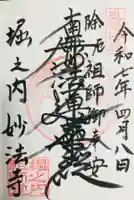 令和七年四月八日
除厄祖師御奉安
南無妙法蓮華経
堀之内妙法寺